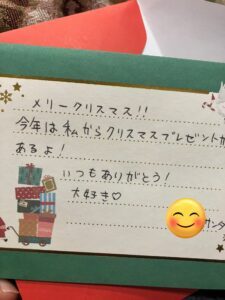 メリークリスマス!!
今年は私からクリスマスプレゼントが
あるよ!
いつもありがとう!
大好き♡
サンタ